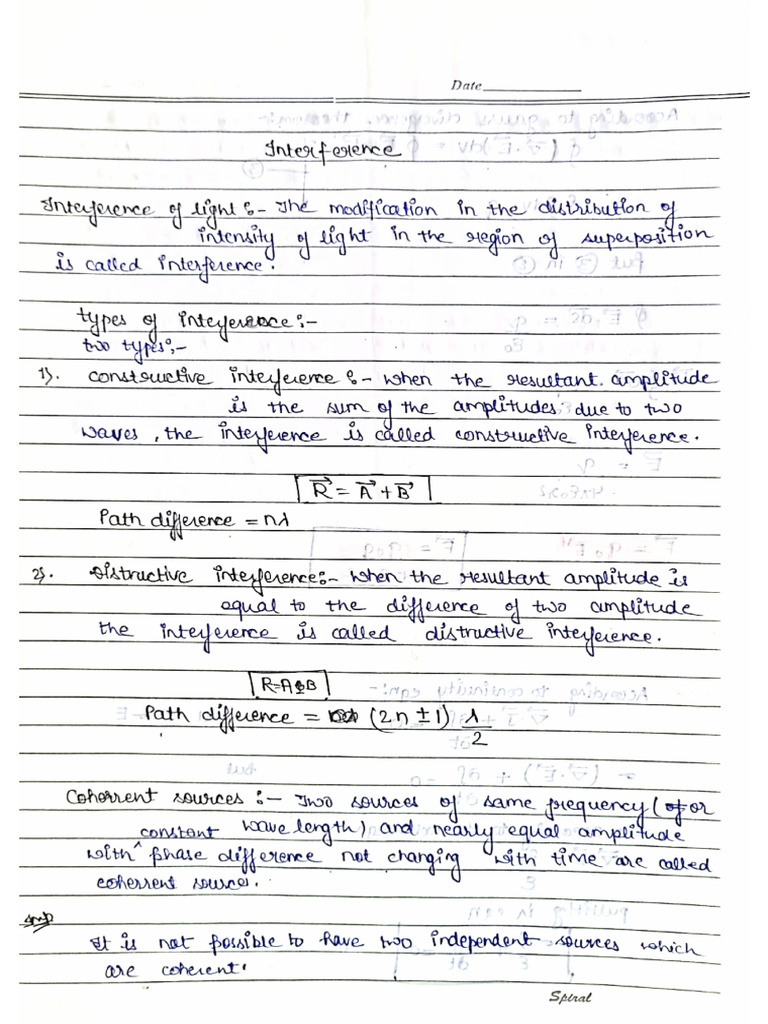 Date
Interference
Interference of light :- The modification in the distribution of
intensity of light in the region of superposition
is called interference.
types of interference :-
two types :-
1). constructive interference :- when the resultant amplitude
is the sum of the amplitudes due to two
waves, the interference is called constructive interference.
R⃗ = A⃗ + B⃗
Path difference = nλ
2). Distructive interference :- when the resultant amplitude is
equal to the difference of two amplitude
the interference is called distructive interference.
R=A-B
Path difference = (2n ± 1) λ/2
Coherrent sources :- Two sources of same frequency ( or
constant wave length) and nearly equal amplitude
with ^ phase difference not changing with time are called
coherrent sources.
Imp
It is not possible to have two independent sources which
are coherent.
Spiral